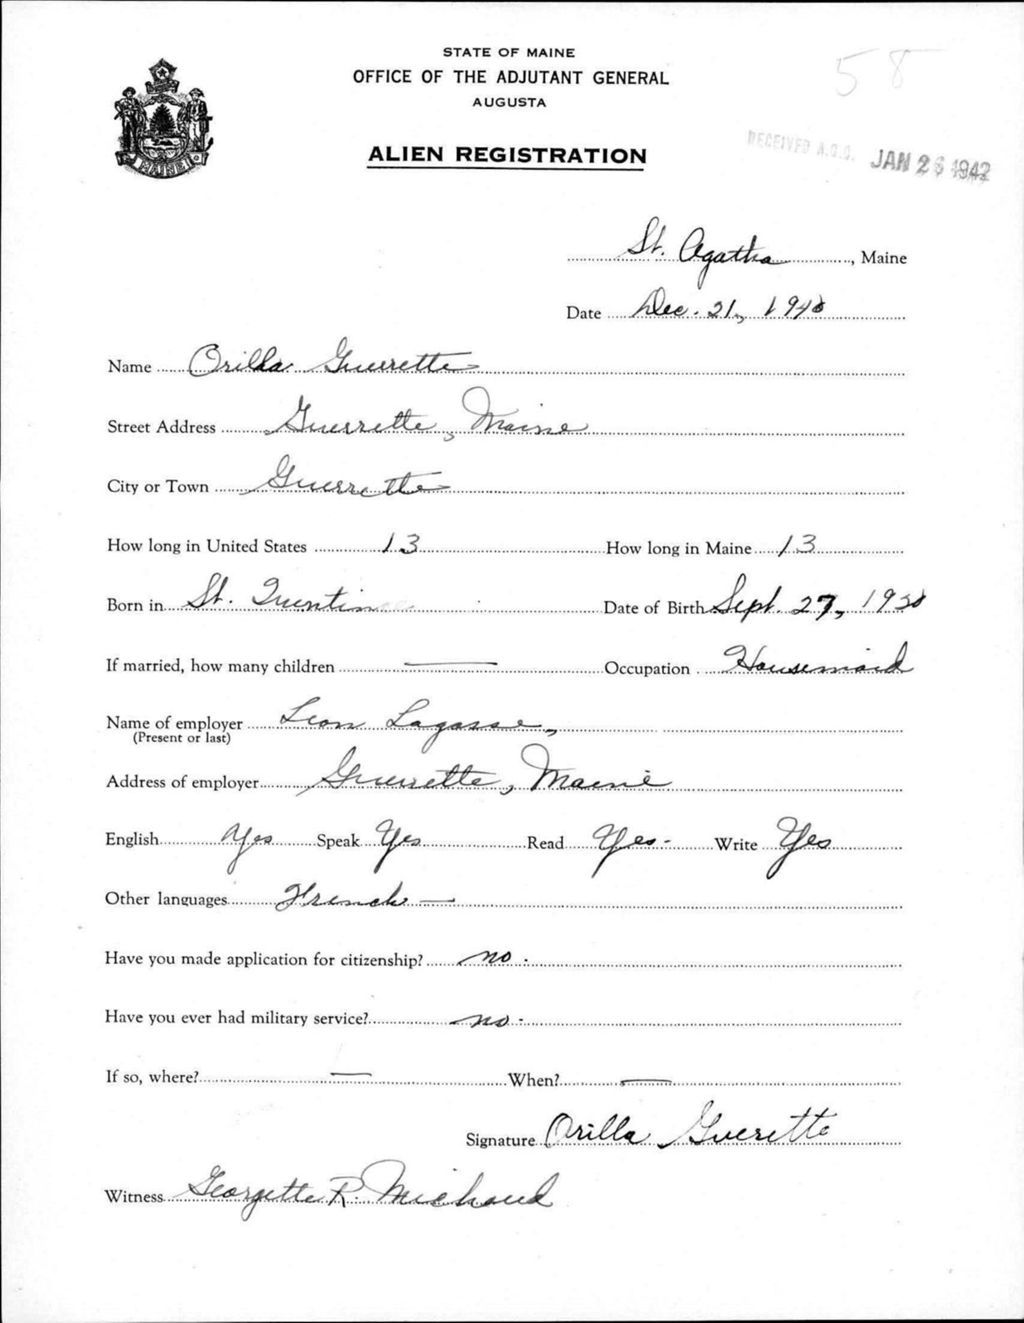 STATE OF MAINE
OFFICE OF THE ADJUTANT GENERAL
AUGUSTA
58
ALIEN REGISTRATION
RECEIVED A.G.O. JAN 26 1942
St. Agatha, Maine
Date Dec. 21, 1940
Name Orilla Guerrette
Street Address Guerrette, Maine
City or Town Guerrette
How long in United States 13 How long in Maine 13
Born in St. Quentin Date of Birth Sept. 27, 1920
If married, how many children — Occupation Housemaid
Name of employer Leon Lagasse,
(Present or last)
Address of employer Guerrette, Maine
English Yes Speak Yes Read Yes - Write Yes
Other languages French —
Have you made application for citizenship? no.
Have you ever had military service? no.
If so, where? — When? —
Signature Orilla Guerette
Witness Georgette R. Michaud
MAINE